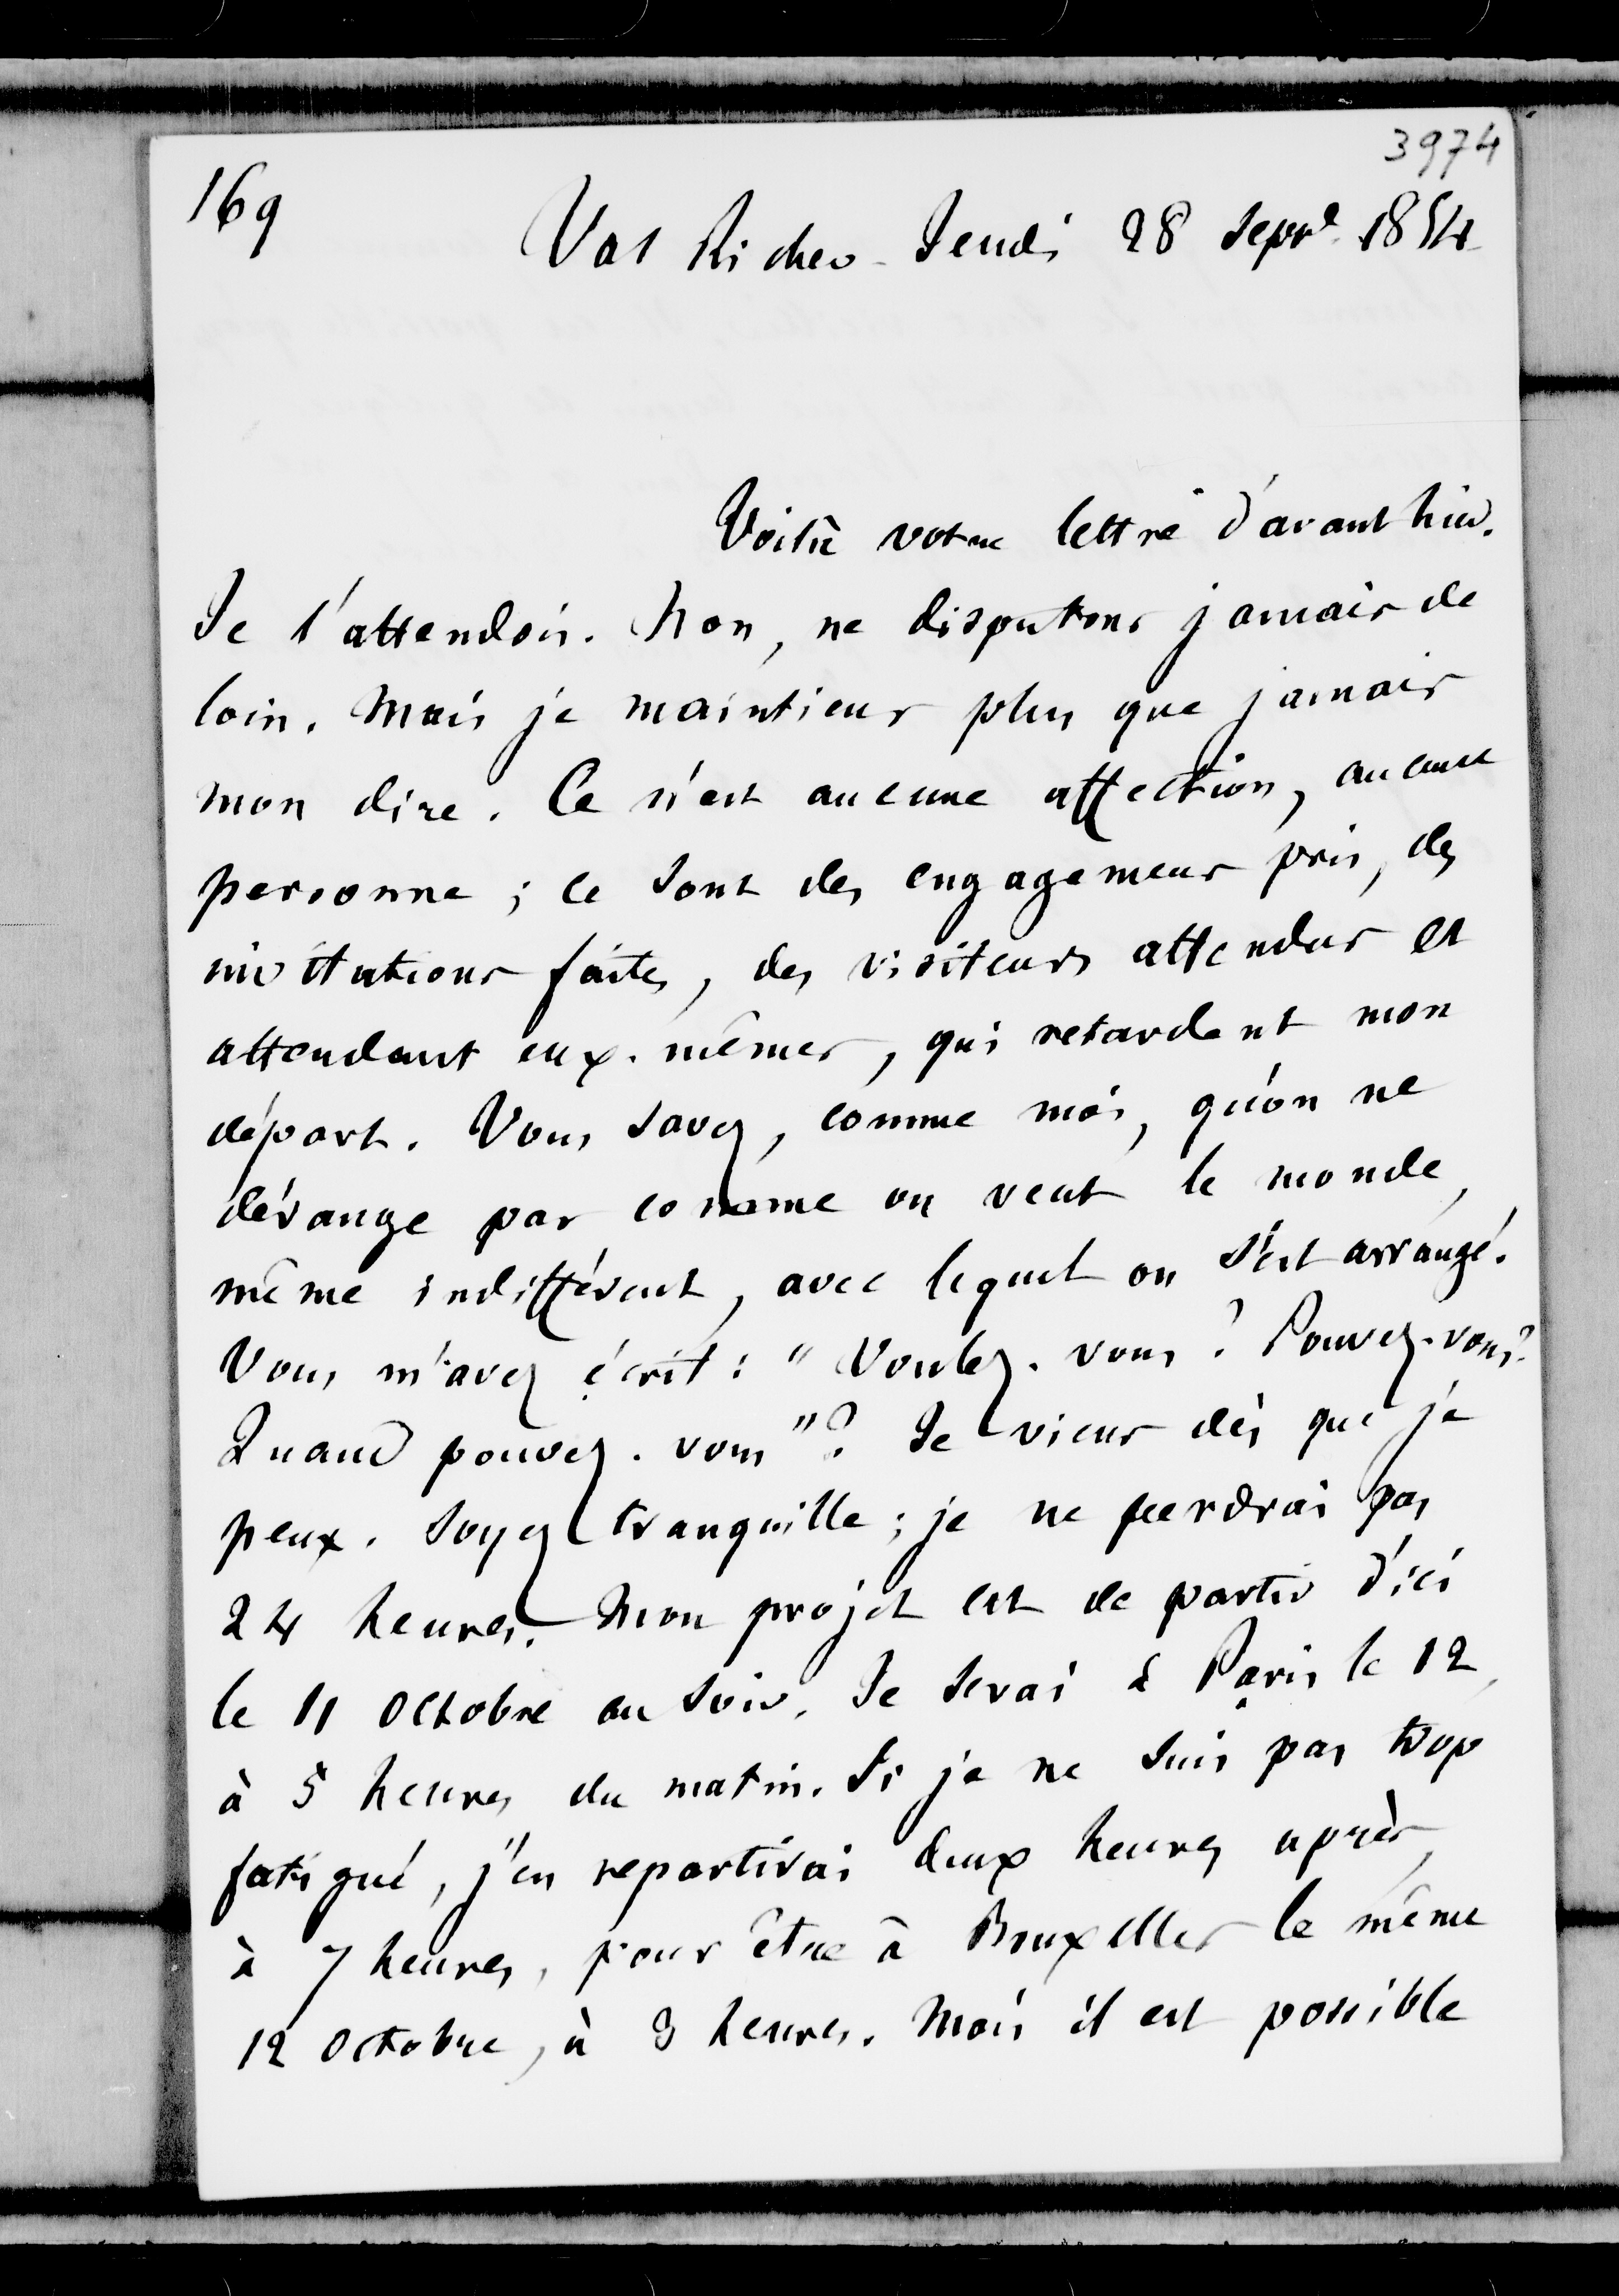 3974
169
Val Richer - Jeudi 28 Sept. 1854
Voilà votre lettre d'avant hier.
Je l'attendois. Non, ne disputons jamais de
loin. Mais je maintiens plus que jamais
mon dire. Ce n'est aucune affection, aucune
personne ; ce sont des engagemens pris, des
invitations faites, des visiteurs attendus et
attendant eux-mêmes, qui retardent mon
départ. Vous savez, comme moi, qu'on ne
dérange pas comme on veut le monde,
même indifférent, avec lequel on s'est arrangé.
Vous m'avez écrit : " Voulez-vous ? Pouvez-vous ?
Quand pouvez-vous " ? Je viens dès que je
peux. Soyez tranquille ; je ne perdrai pas
24 heures. Mon projet est de partir d'ici
le 11 Octobre au soir. Je serai à Paris le 12,
à 5 heures du matin. Si je ne suis pas trop
fatigué, j'en repartirai deux heures après,
à 7 heures, pour être à Bruxelles le même
12 Octobre, à 3 heures. Mais il est possible